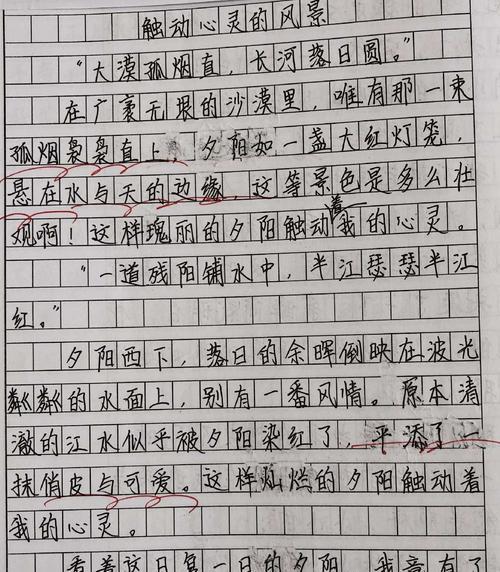 触动心灵的风景
“大漠孤烟直，长河落日圆。”
在广袤无垠的沙漠里，唯有那一束
孤烟袅袅直上，夕阳如一盏大红灯笼，
悬在水与天的边缘，这等景色是多么壮
观啊！这样瑰丽的夕阳触动着我的心灵。
“一道残阳铺水中，半江瑟瑟半江
红。”
夕阳西下，落日的余晖倒映在波光
粼粼的水面上，别有一番风情。原本清
澈的江水似乎被夕阳染红了，平添了一
抹俏皮与可爱。这样灿烂的夕阳触动着
我的心灵。
看着这日复一日的夕阳，我竟有了